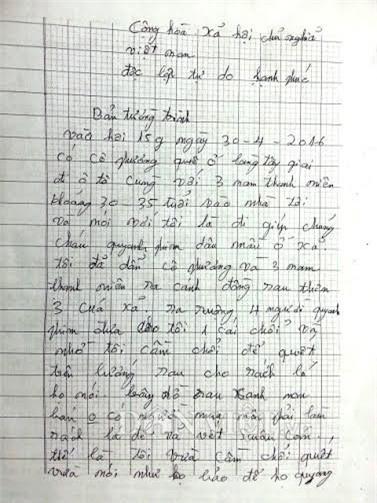 Cộng hòa xả hội chủ nghiả
việt nam
độc lập tư do hạnh phúc
Bản tường trình
vào hồi 15g ngày 30-4-2016
có cô phương quê ở lang tây giai
đi ô tô cung với 3 nam thanh niên
khoảng 30-35 tuổi vào nhà tôi
và nói với tôi là đi giúp chúng
cháu quyanh phim dầu mầu ở xả
tôi đả dẩn cô phương và 3 nam
thanh niên ra canh đồng rau thôn
3 cuả xả ra ruộng 4 người đi quyanh
phim đưa cho tôi 1 cái chổi và
nhờ tôi cầm chổi để quét
trên luống rau cho rách lá
họ nói bây giờ rau xanh non
bán o có người mua nên phải làm
rách lá đi và vết xuân cắn,
thế là tôi vừa cầm chổi quét
vừa nói như họ bảo để họ quyang